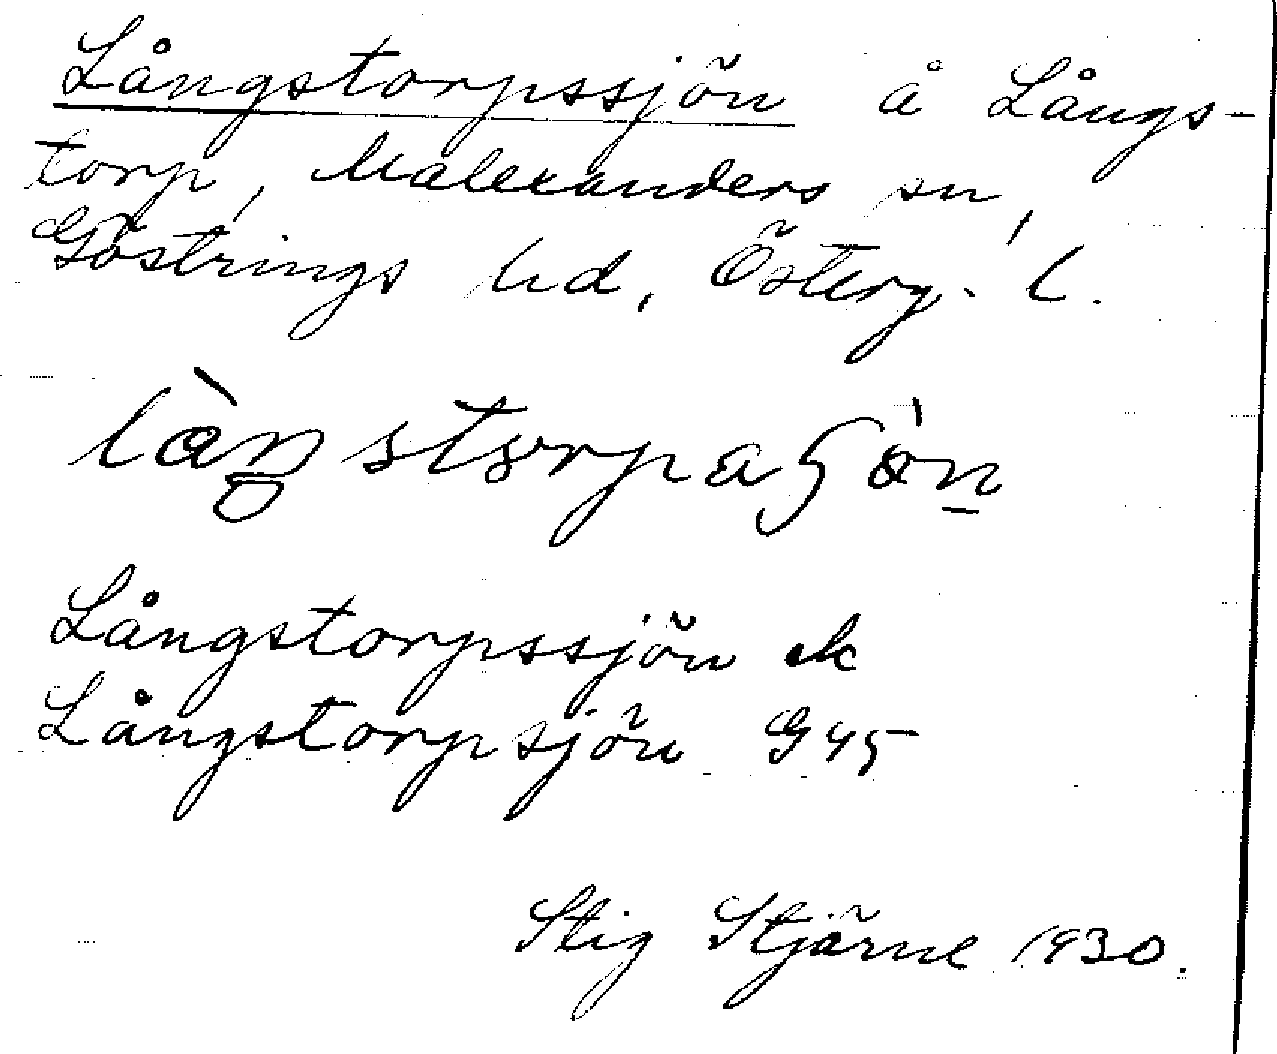 Långstorpssjön å Långs-
torp, Malexanders sn,
Göstrings hd, Österg. l.
Långstorpssjön ek
Långstorpsjön G45
Stig Stjärne 1930.